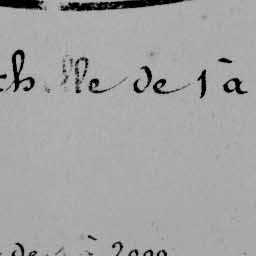 chelle de 1 à
de 1 à 2000